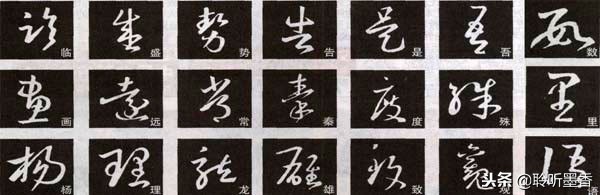 临 盛 势 告 是 吾 数
画 远 常 秦 度 殊 里
杨 理 龙 雄 致 观 语
头条 @聆听墨香